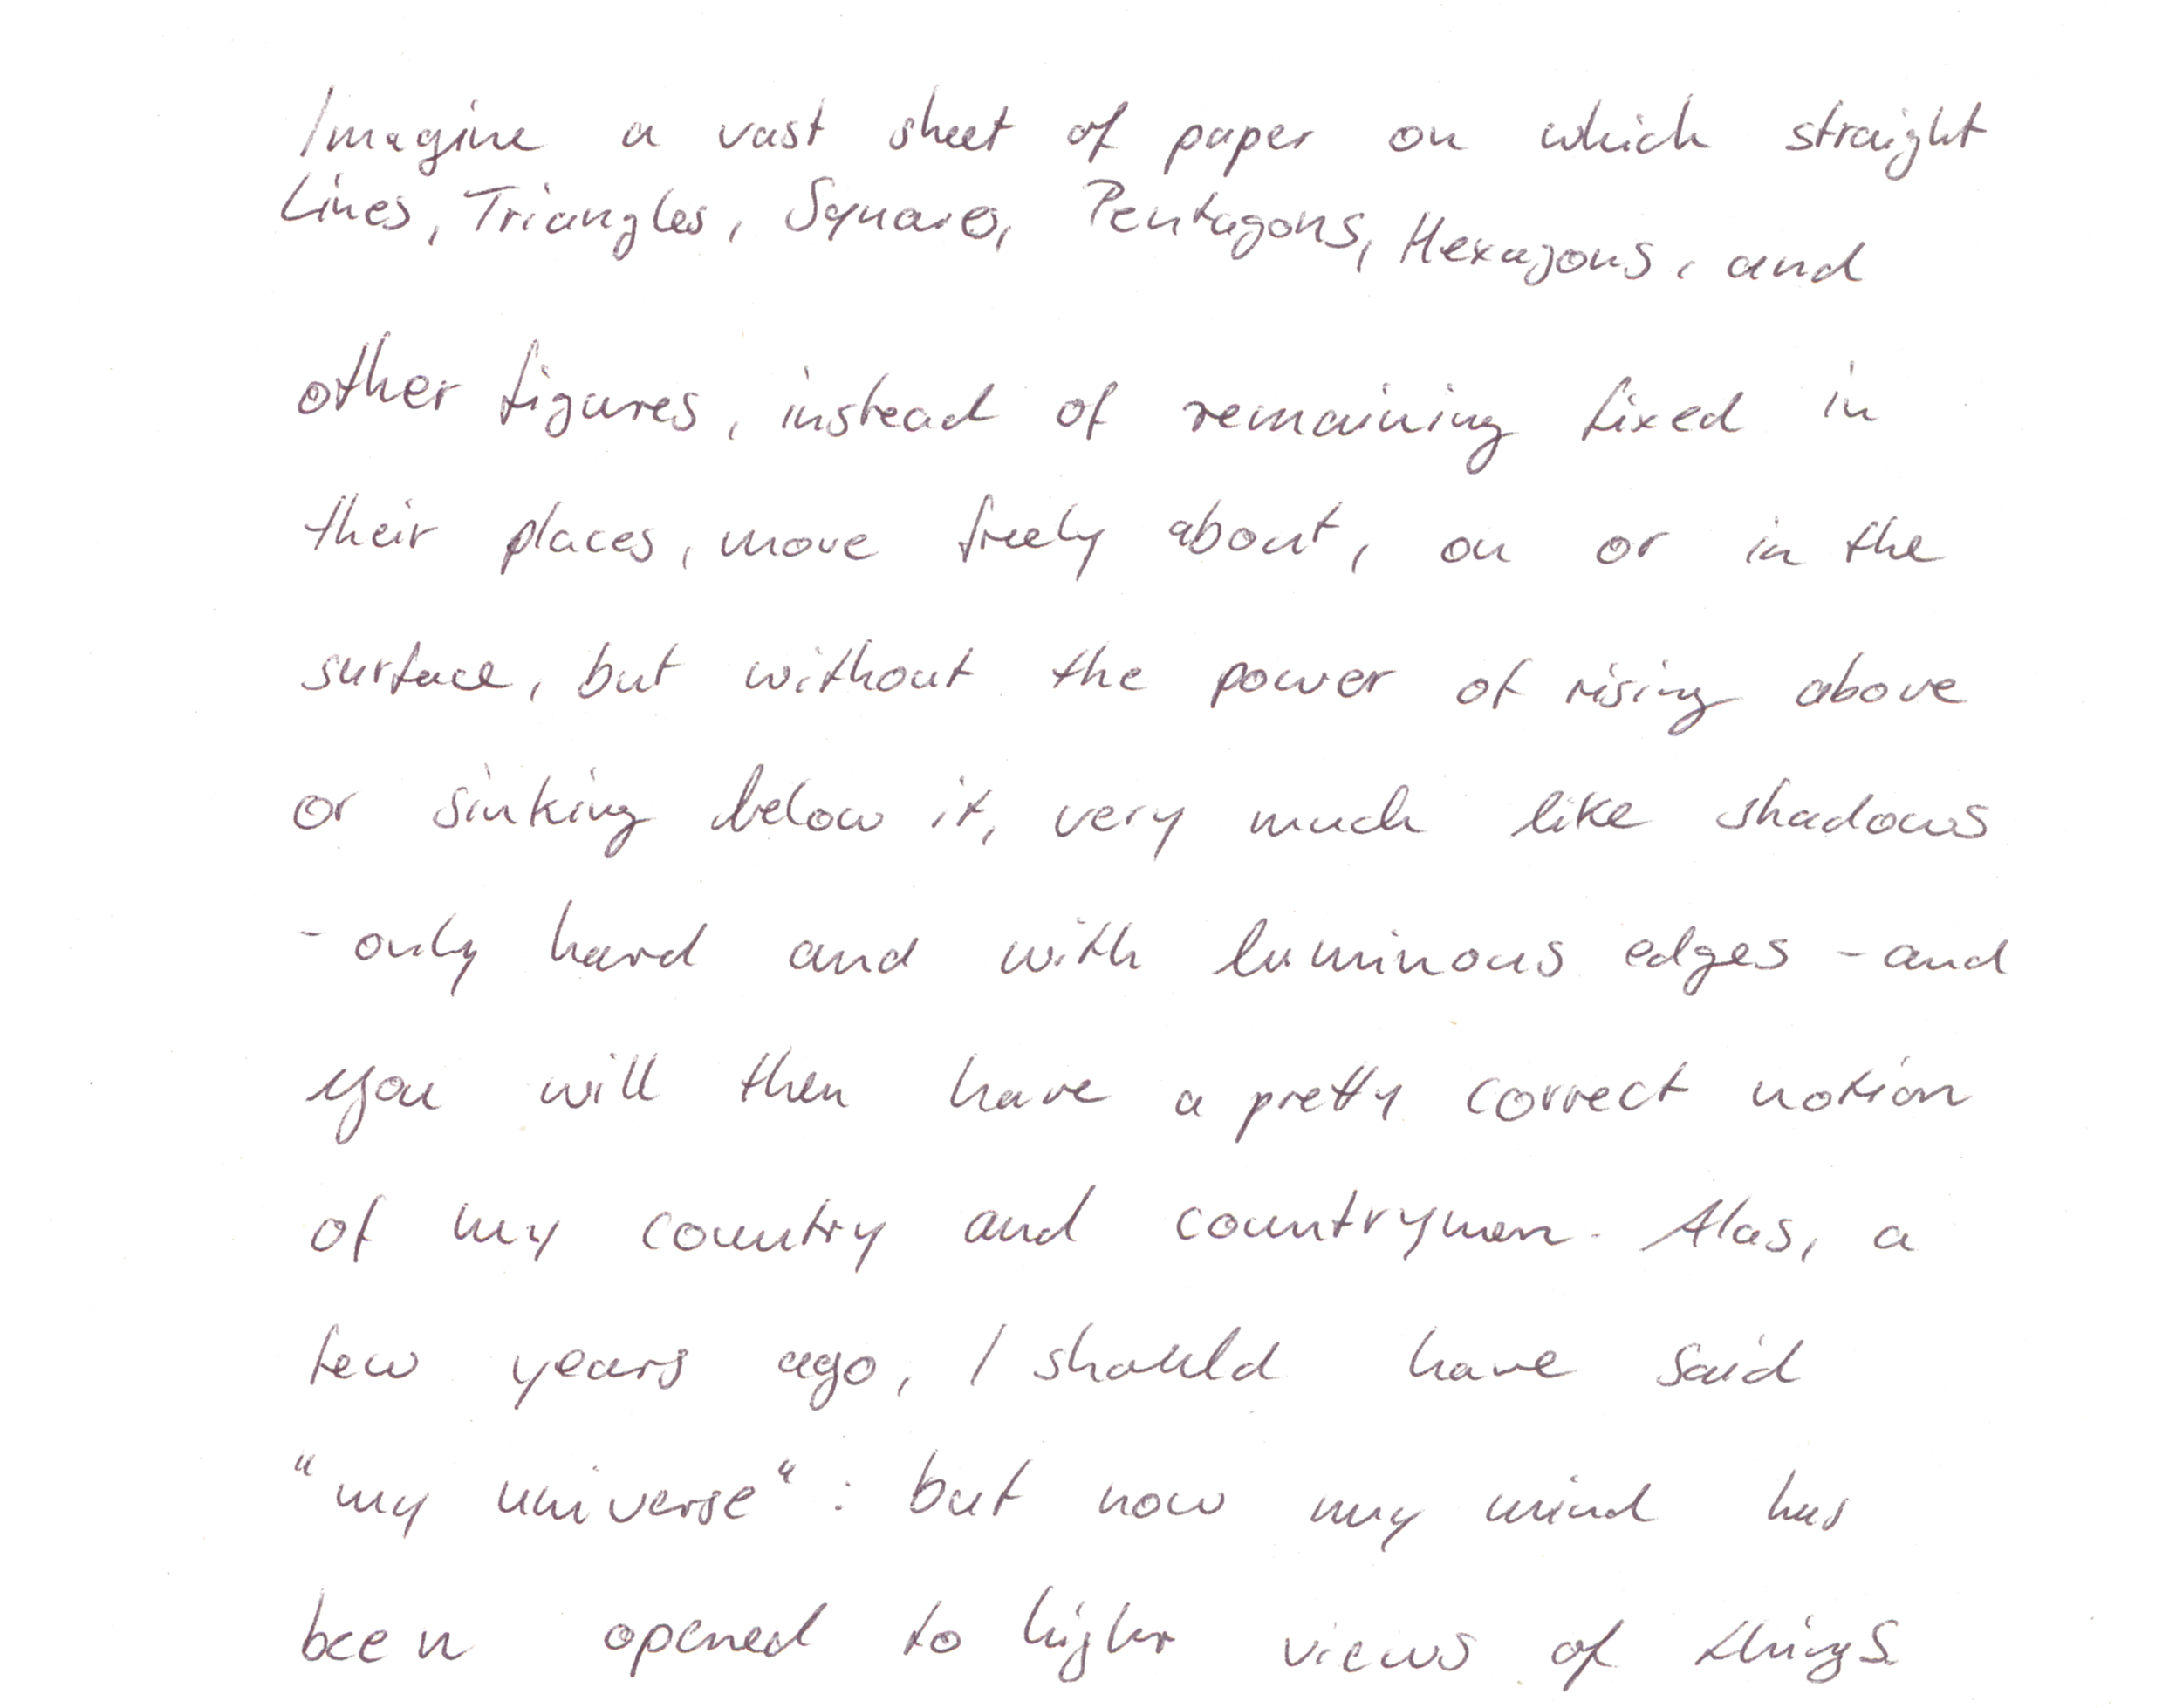 Imagine a vast sheet of paper on which straight
Lines, Triangles, Squares, Pentagons, Hexagons, and
other figures, instead of remaining fixed in
their places, move freely about, on or in the
surface, but without the power of rising above
or sinking below it, very much like shadows
- only hard and with luminous edges - and
you will then have a pretty correct notion
of my country and countrymen. Alas, a
few years ago, I should have said
"my universe": but now my mind has
been opened to higher views of things.